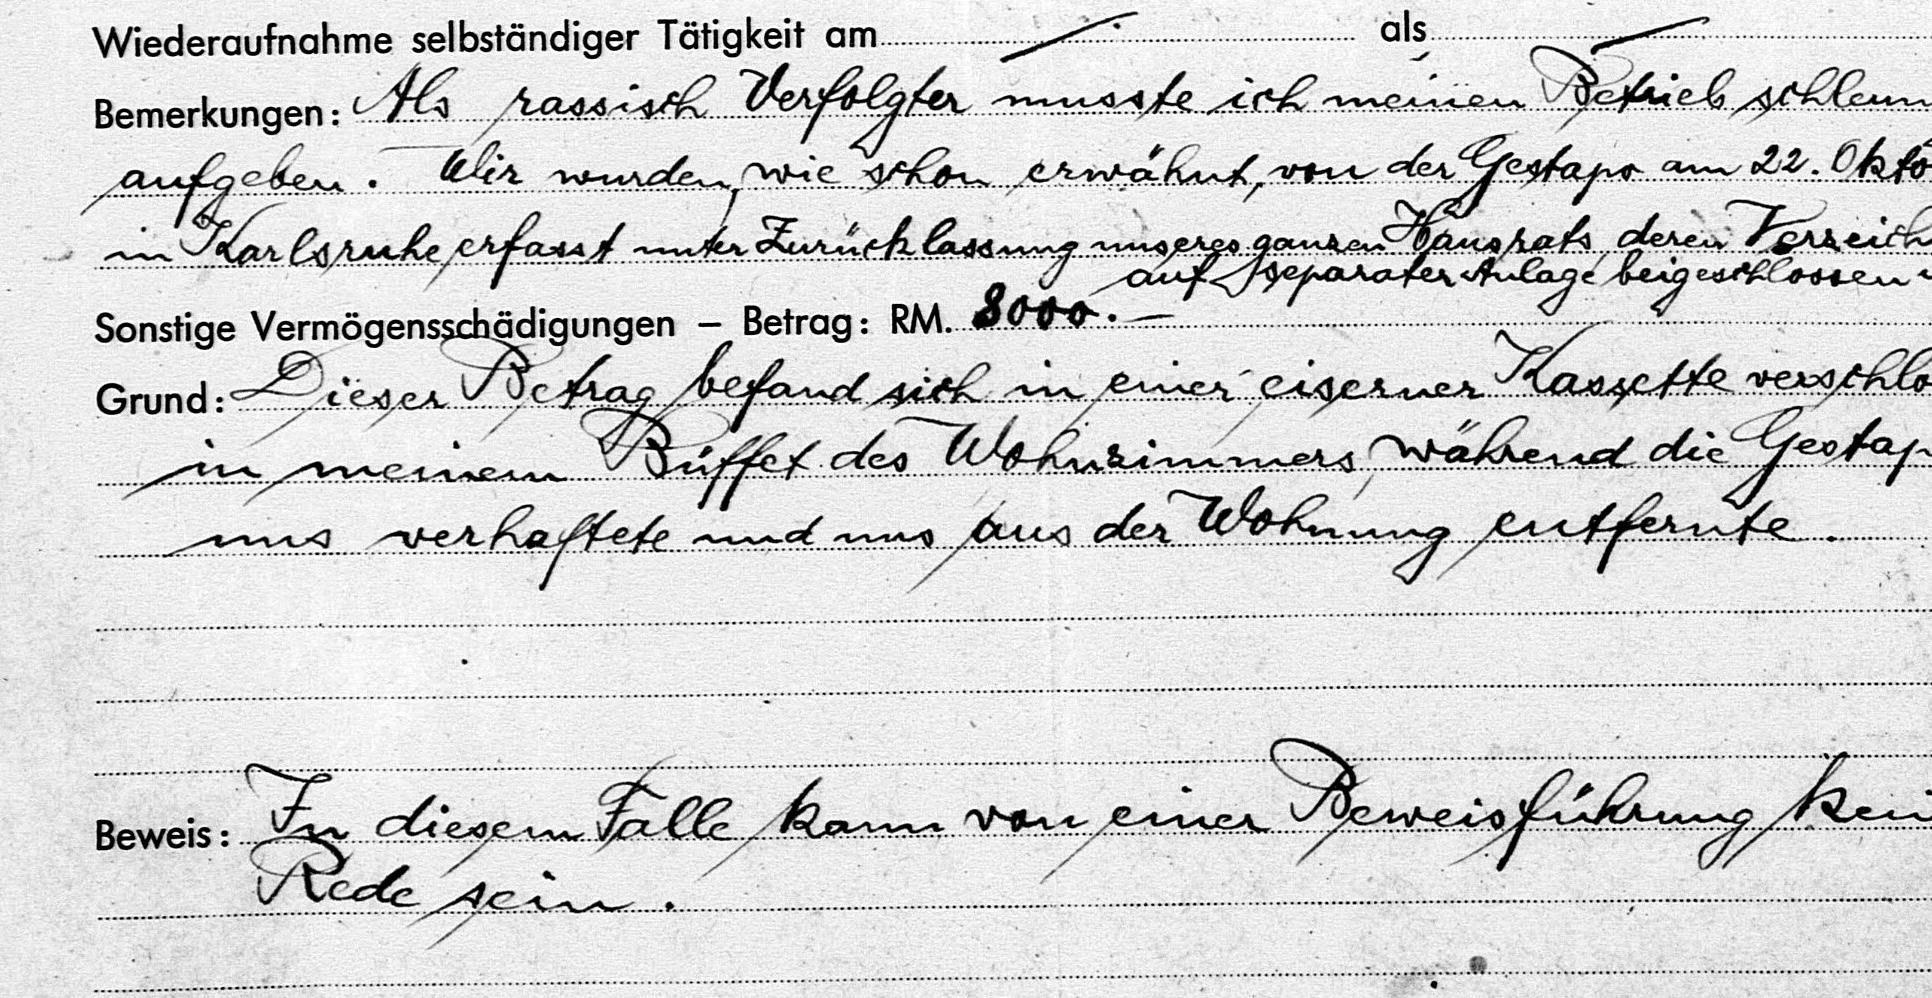 Wiederaufnahme selbständiger Tätigkeit am / als /
Bemerkungen: Als rassisch Verfolgter musste ich meinen Betrieb schleun
aufgeben. Wir wurden, wie schon erwähnt, von der Gestapo am 22. Okto
in Karlsruhe erfasst unter Zurücklassung unseres ganzen Hausrats, deren Verzeich
auf separater Anlage beigeschlossen
Sonstige Vermögensschädigungen – Betrag: RM. 8000.—
Grund: Dieser Betrag befand sich in einer eiserner Kassette verschlo
in meinem Büffet des Wohnzimmers, während die Gestap
uns verhaftete und uns aus der Wohnung entfernte.
Beweis: In diesem Falle kann von einer Beweisführung kei
Rede sein.